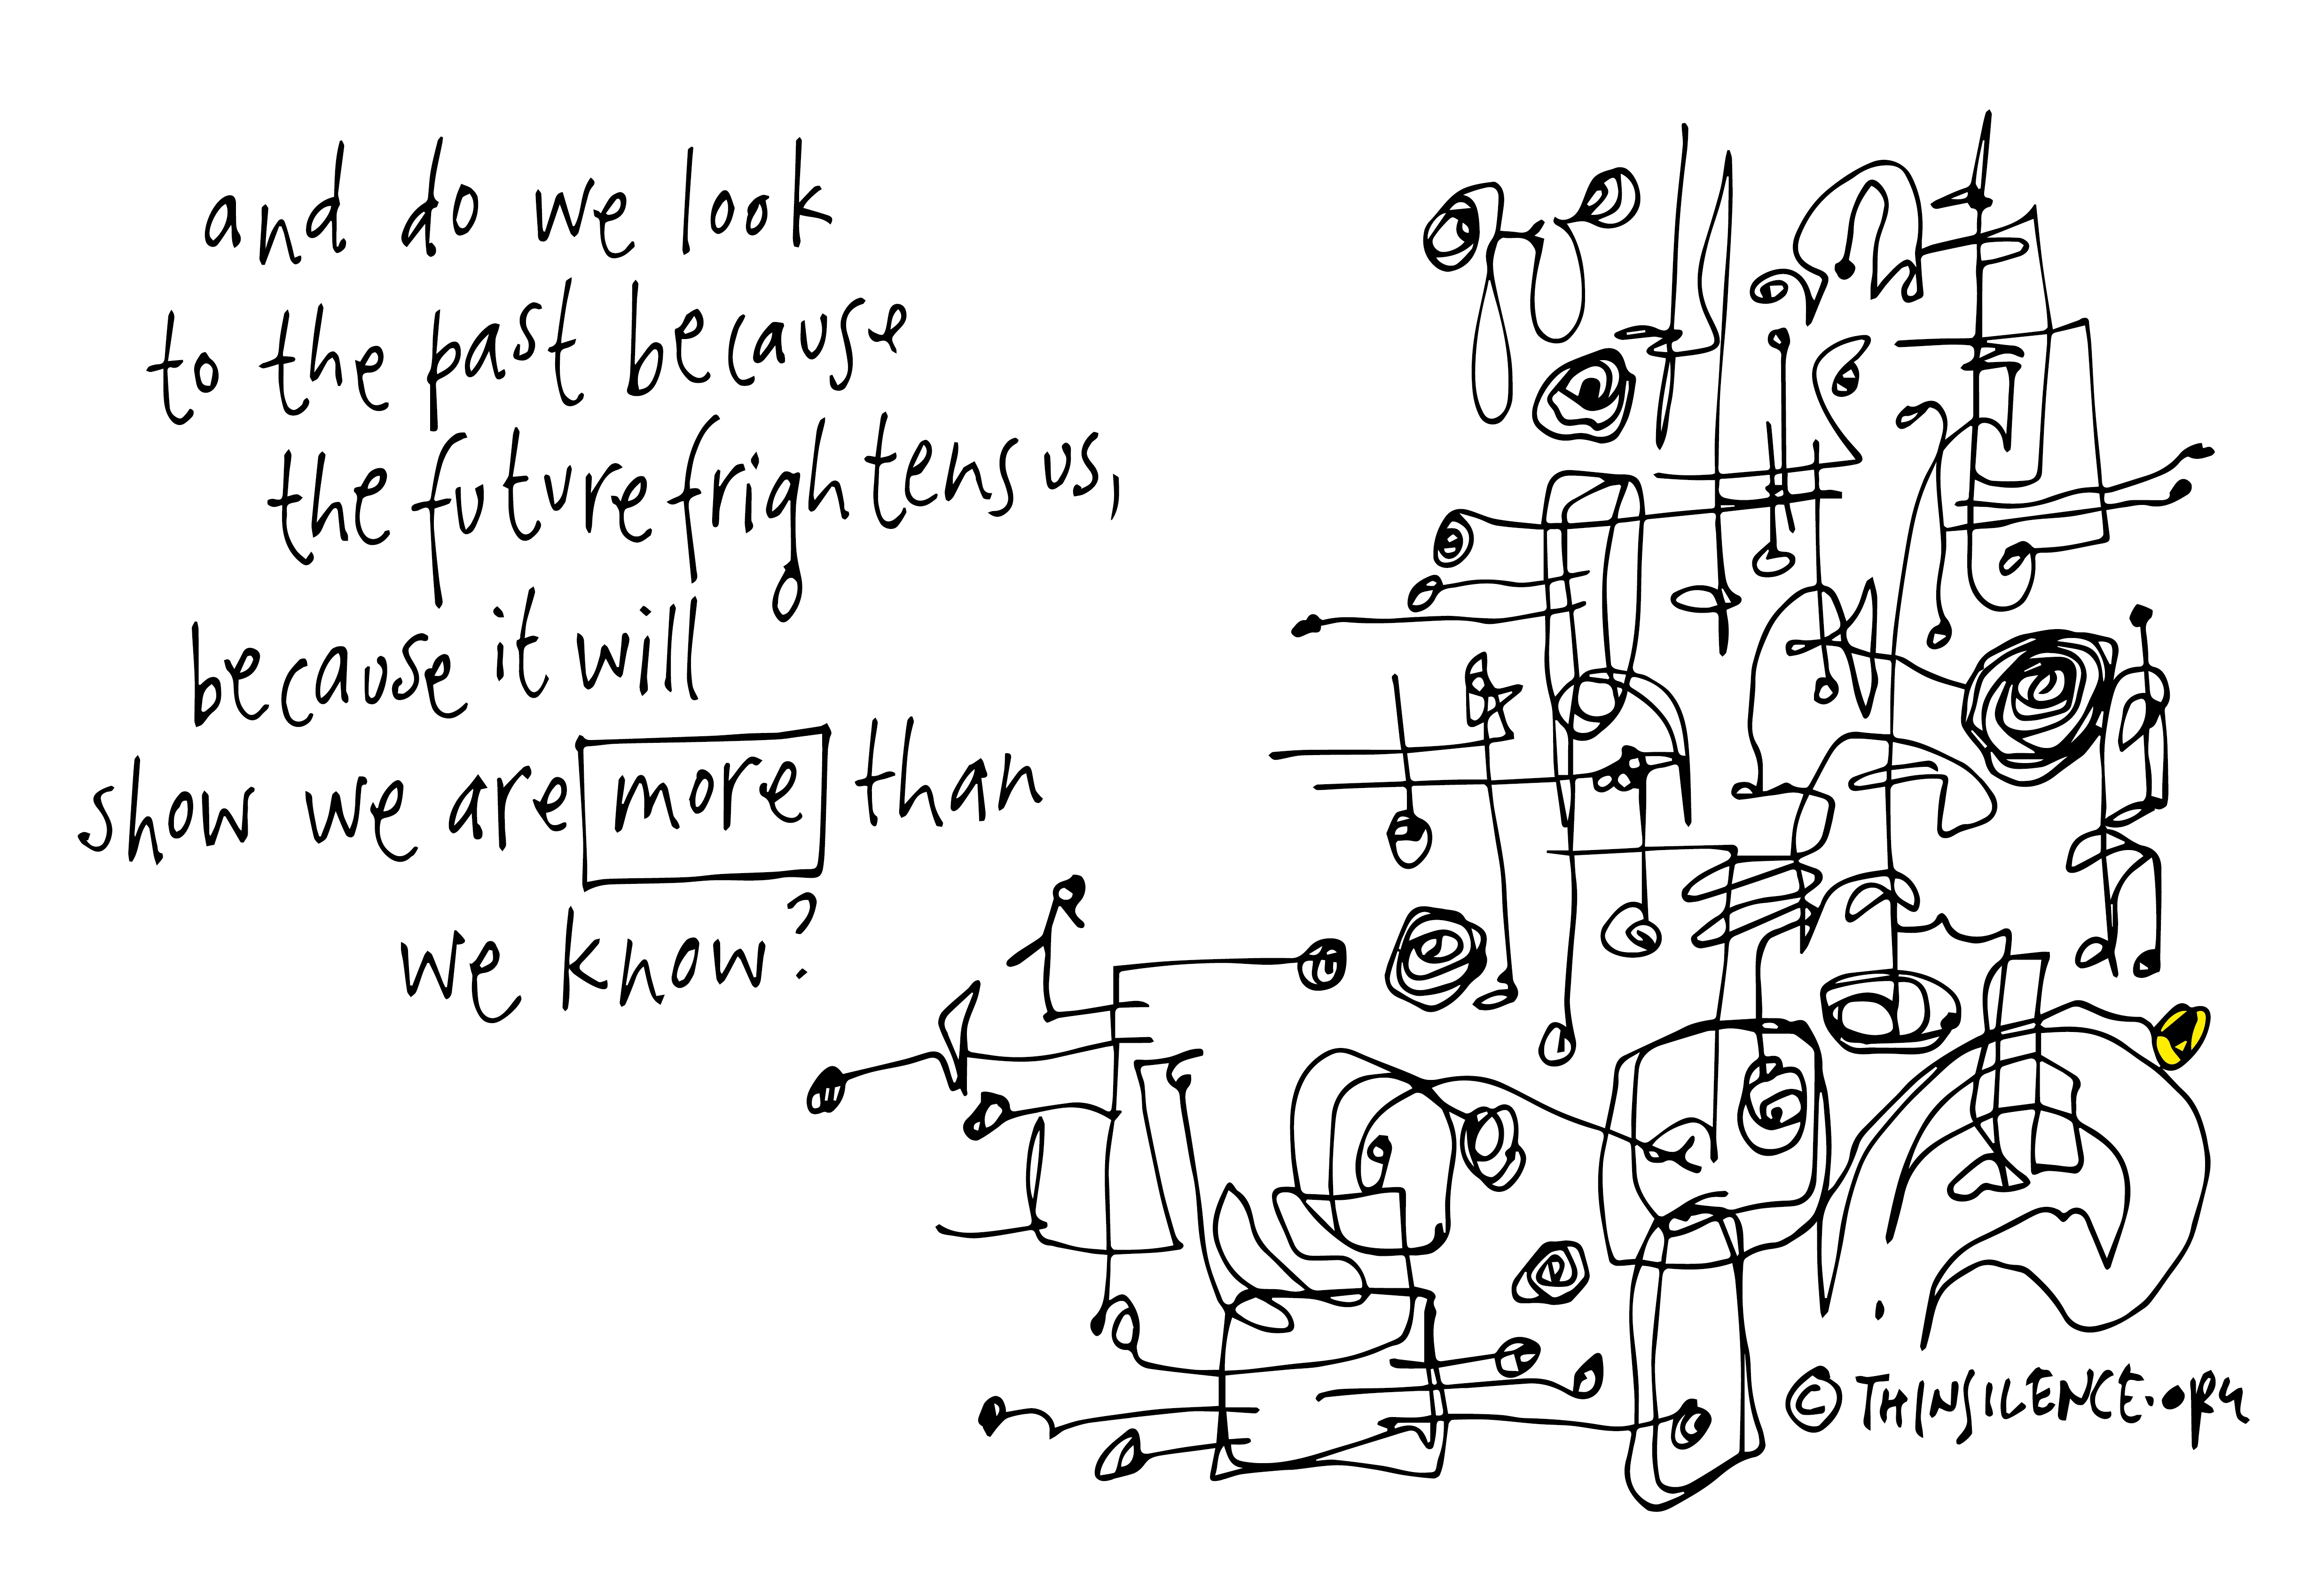 and do we look
to the past because
the future frightens us,
because it will
show we are more than
we know?
© THINSILENCE.ORG